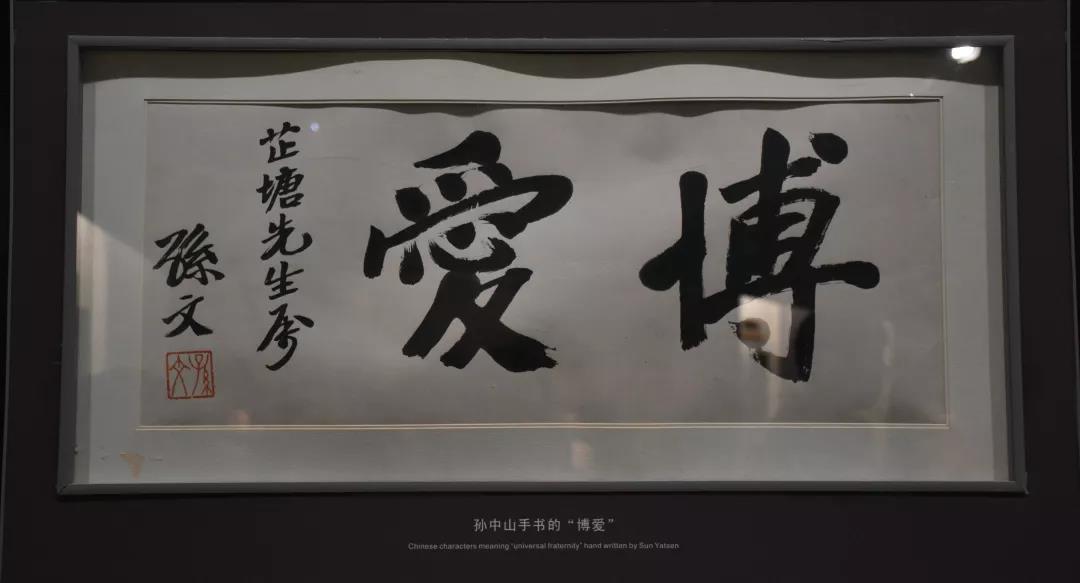 博愛
芷塘先生属
孫文
孫文
孙中山手书的“博爱”
Chinese characters meaning "universal fraternity" hand written by Sun Yatsen